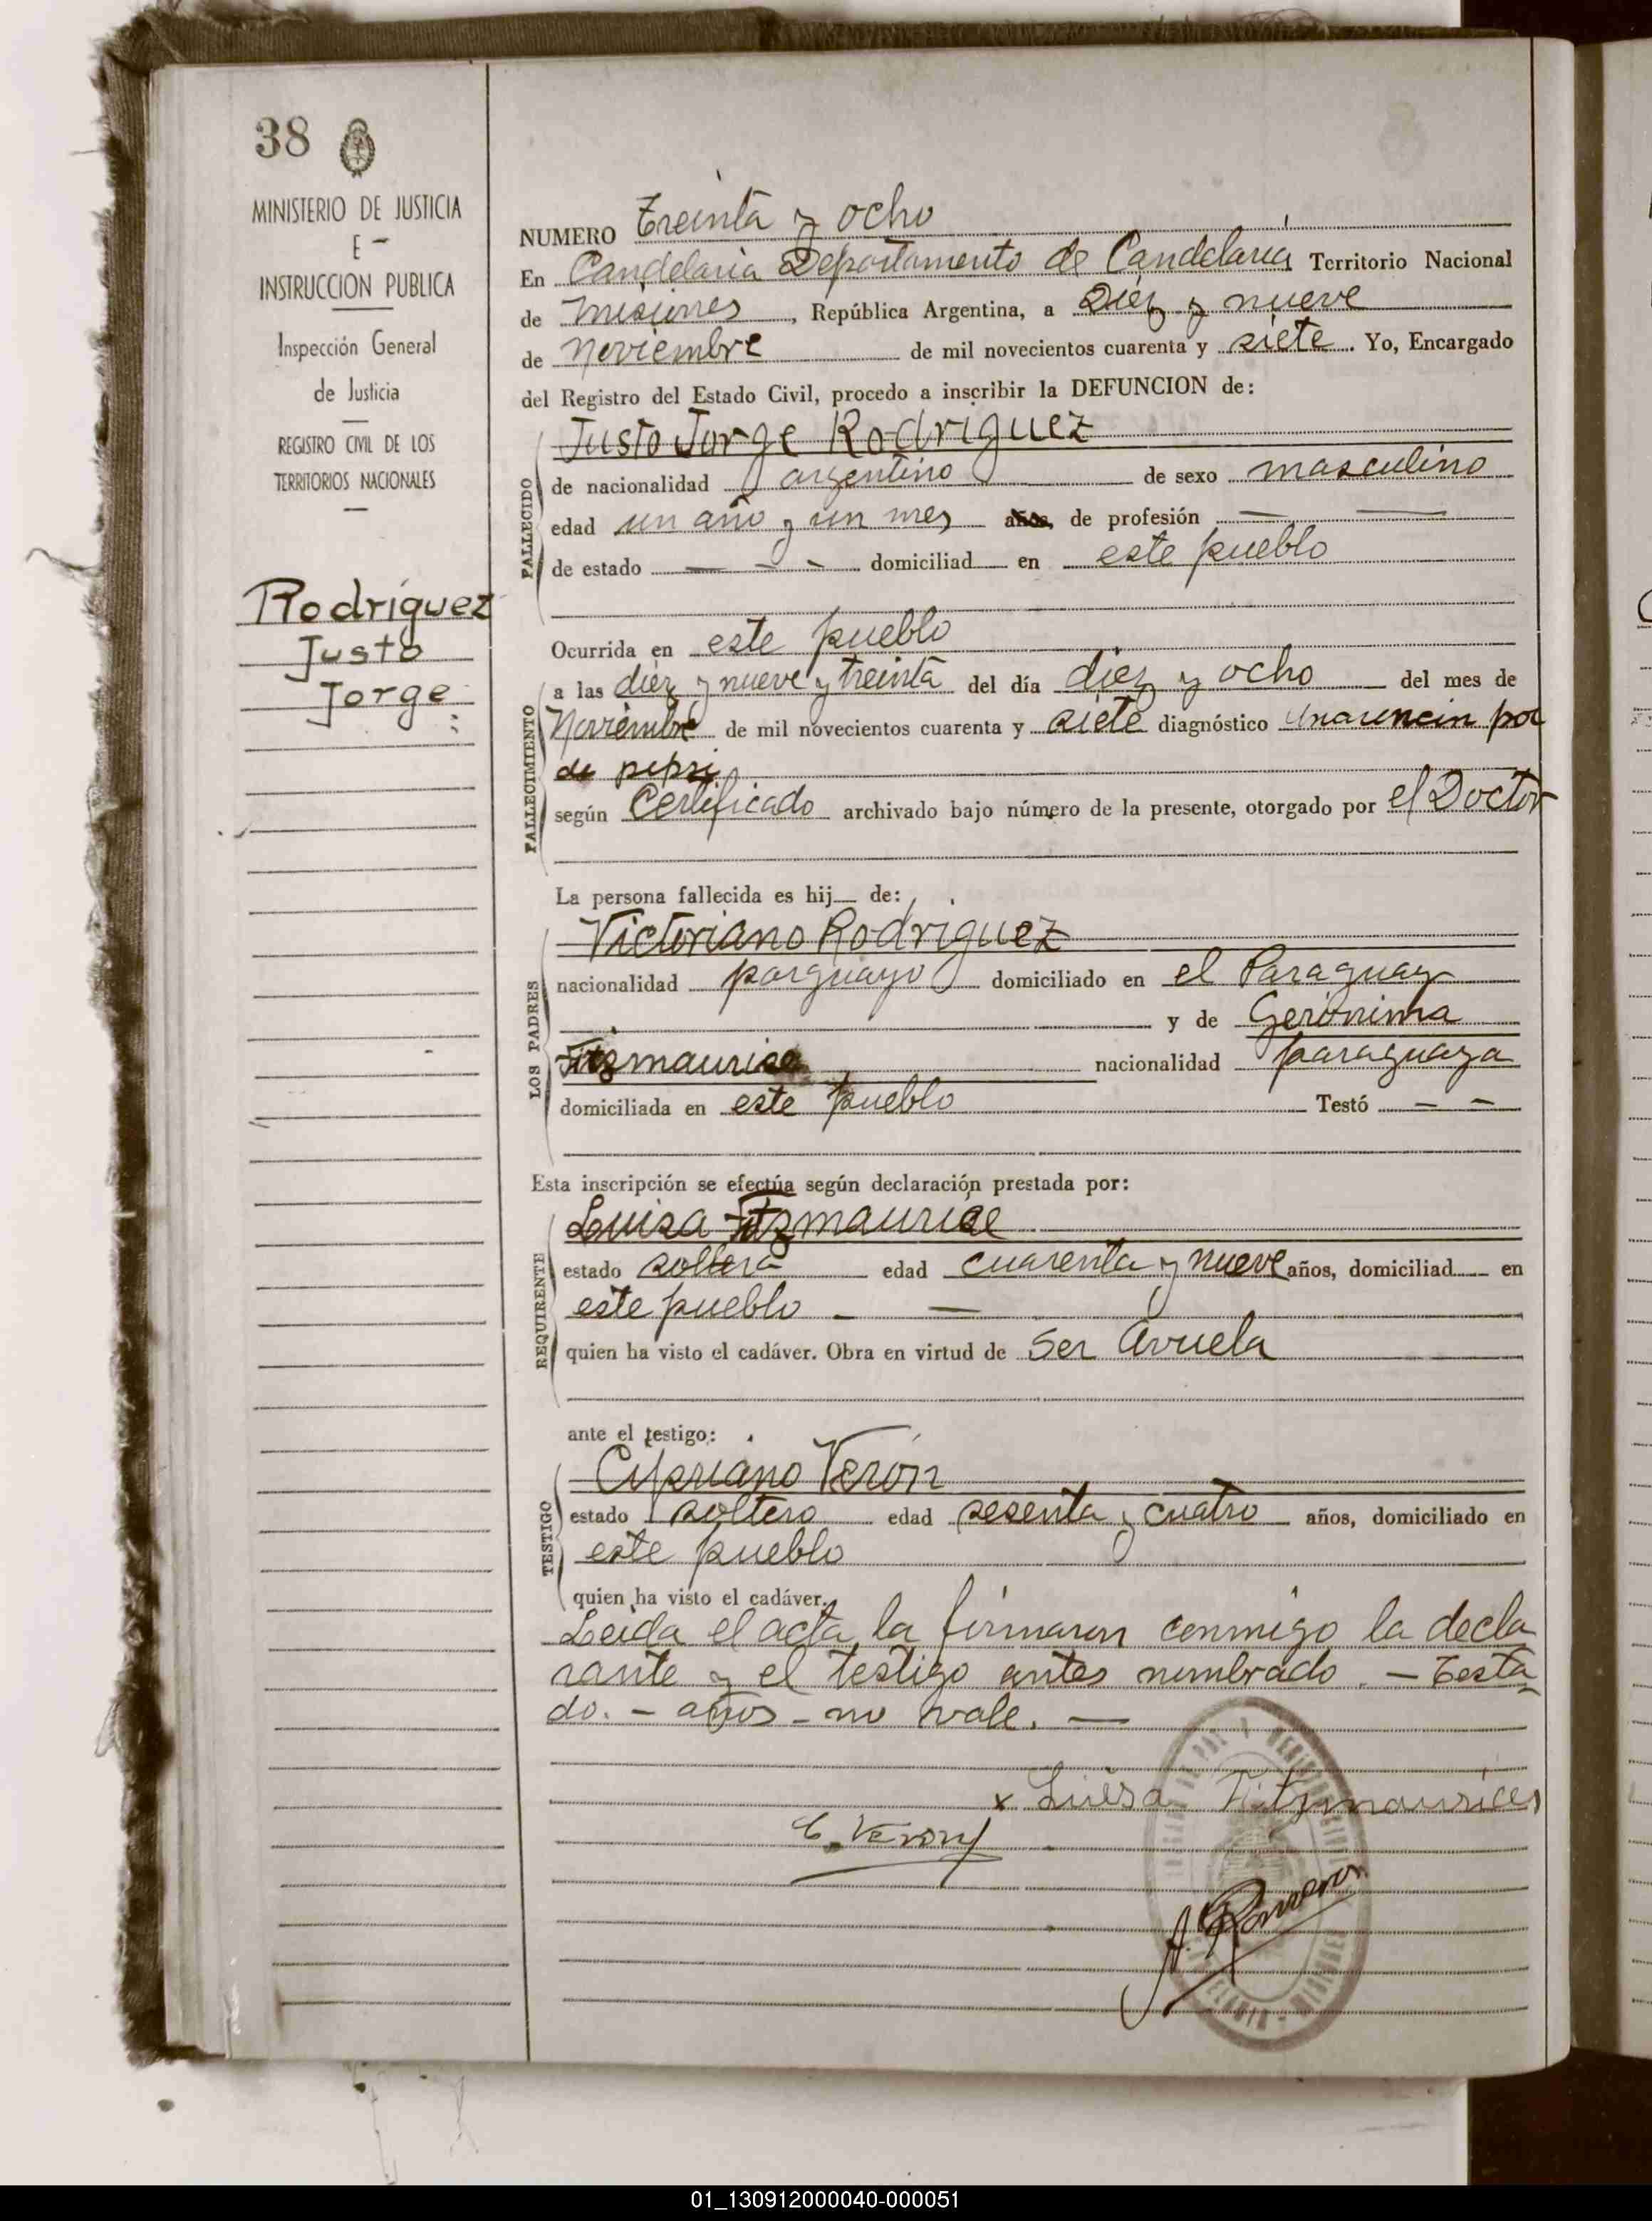 38
MINISTERIO DE JUSTICIA
E
INSTRUCCION PUBLICA
Inspección General
de Justicia
REGISTRO CIVIL DE LOS
TERRITORIOS NACIONALES
Rodríguez
Justo
Jorge
NUMERO Treinta y ocho
En Candelaria Departamento de Candelaria Territorio Nacional
de Misiones, República Argentina, a Diéz y nueve
de Noviembre de mil novecientos cuarenta y siete. Yo, Encargado
del Registro del Estado Civil, procedo a inscribir la DEFUNCION de:
Justo Jorge Rodriguez
FALLECIDO
de nacionalidad argentino de sexo masculino
edad un año y un mes años, de profesión — —
de estado — - - domiciliad en este pueblo
Ocurrida en este pueblo
FALLECIMIENTO
a las diéz y nueve y treinta del día diez y ocho del mes de
Noviembre de mil novecientos cuarenta y siete diagnóstico por
de pepsi
según Certificado archivado bajo número de la presente, otorgado por el Doctor
La persona fallecida es hij de:
LOS PADRES
Victoriano Rodriguez
nacionalidad parguayo domiciliado en el Paraguay
y de Gerónima
Fitzmaurice nacionalidad paraguaya
domiciliada en este pueblo Testó — —
Esta inscripción se efectúa según declaración prestada por:
REQUIRENTE
Luisa Fitzmaurice
estado soltera edad cuarenta y nueve años, domiciliad en
este pueblo - —
quien ha visto el cadáver. Obra en virtud de Ser Avuela
ante el testigo:
TESTIGO
Cipriano Verón
estado soltero edad sesenta y cuatro años, domiciliado en
este pueblo
quien ha visto el cadáver.
Leida el acta, la firmaron conmigo la decla
rante y el testigo antes nombrado. — Testa
do. - años - no vale. —
x Luisa Fitzmaurices
C. Veron
A. Romero
01_130912000040-000051